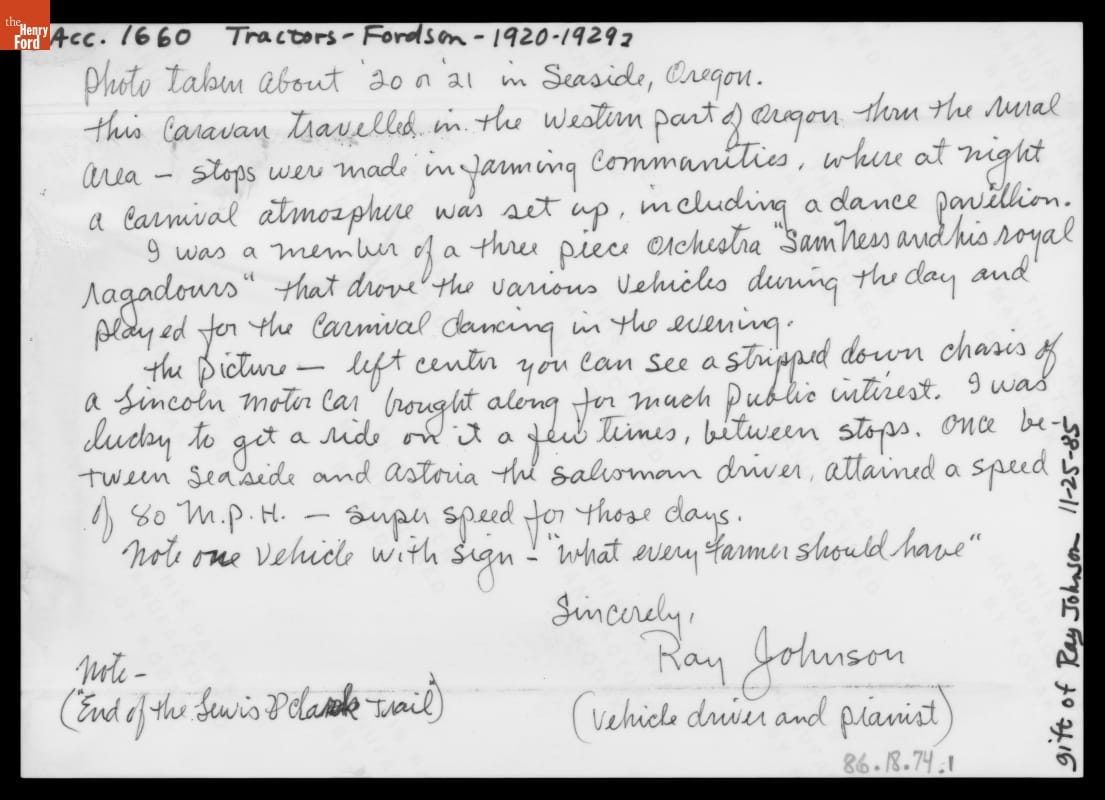 the Henry Ford
Acc. 1660 Tractors - Fordson - 1920-1929?
Photo taken about '20 or '21 in Seaside, Oregon.
This caravan travelled in the western part of Oregon thru the rural
area — stops were made in farming communities, where at night
a carnival atmosphere was set up, including a dance pavillion.
I was a member of a three piece orchestra "Sam Hess and his royal
ragadours" that drove the various vehicles during the day and
played for the carnival dancing in the evening.
The picture — left center you can see a stripped down chasis of
a Lincoln motor car brought along for much public interest. I was
lucky to get a ride on it a few times, between stops. Once be-
tween Seaside and Astoria the salesman driver, attained a speed
of 80 M.P.H. — super speed for those days.
Note one vehicle with sign - "What every farmer should have"
Sincerely,
Ray Johnson
(Vehicle driver and pianist)
Note -
("End of the Lewis & Clark Trail")
86.18.74.1
gift of Ray Johnson 11-25-85